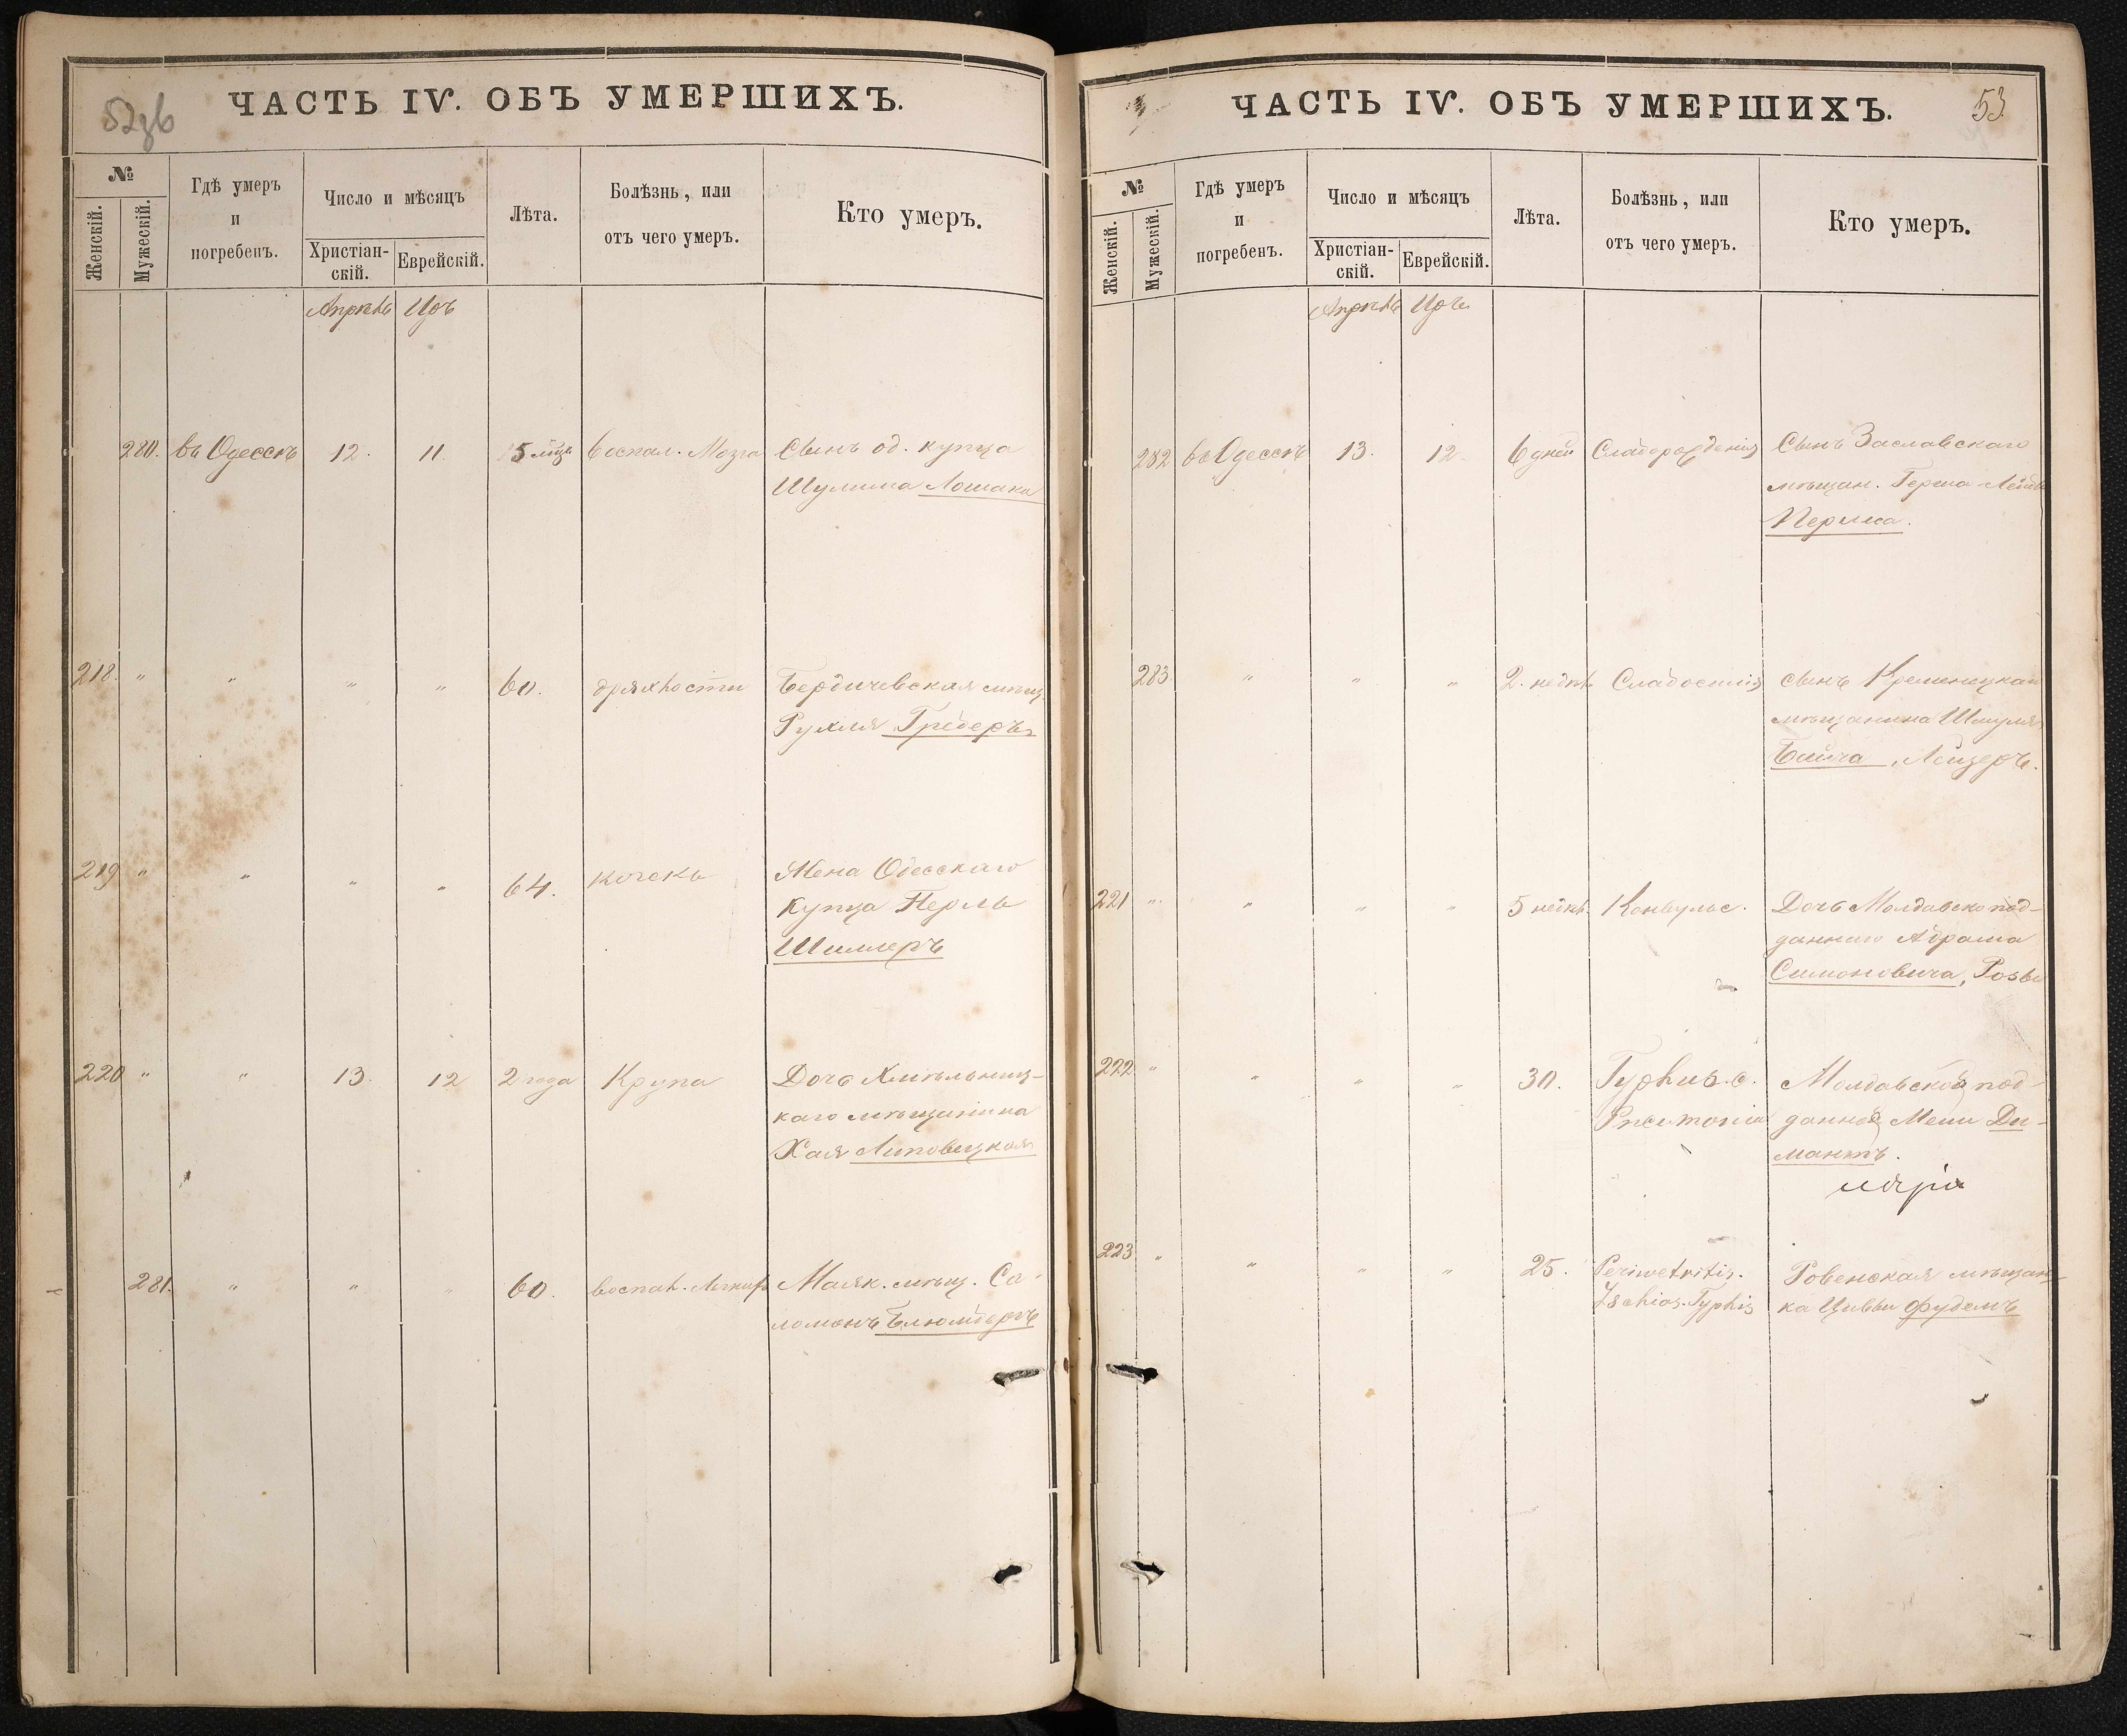 52об
ЧАСТЬ IV. ОБЪ УМЕРШИХЪ.
№
Женскій.
Мужескій.
Гдѣ умеръ
и
погребенъ.
Число и мѣсяцъ
Христіан-
скій.
Еврейскій.
Лѣта.
Болѣзнь, или
отъ чего умеръ.
Кто умеръ.
Апрѣль Иоръ
280. въ Одессѣ 12. 11. 5 мѣц. воспал. Мозга Сынъ од. купца
Шулима Лошака
218. " " " " 60. дряхлости Бердичевская мѣщ.
Рухля Гредеръ
219 " " " " 64. Жена Одесскаго
Купца Перль
Шиллеръ
220 " " 13. 12 2 года Крупа Дочь Хмѣльниц-
каго мѣщанина
Хая Липовецкая
281. " " " 60. воспал. Легкихъ Маяк. мѣщ. Со-
ломонъ Блюмбергъ
ЧАСТЬ IV. ОБЪ УМЕРШИХЪ.
53
№
Женскій.
Мужескій.
Гдѣ умеръ
и
погребенъ.
Число и мѣсяцъ
Христіан-
скій.
Еврейскій.
Лѣта.
Болѣзнь, или
отъ чего умеръ.
Кто умеръ.
Апрѣль Иоръ
282 въ Одессѣ 13. 12. 6 дней Слаборожденія Сынъ Заславскаго
мѣщан. Герша-Лейб
Перлма.
283 " " " 2. недѣл Слабосилія сынъ Кременецкаго
мѣщанина Шмуля
Лейзеръ.
221 " " " " 5 недѣл. Конвульс. Дочь Молдавскопод-
даннаго Абрама
Симоновича, Розы
222 " " " " 30. Typhus. c. Молдавской под-
Pneumonia данной Мени Ди-
мантъ.
223 " " " " 25. Perimetritis. Ровенская мѣщан-
Typhis ка Цивьи Фудемъ